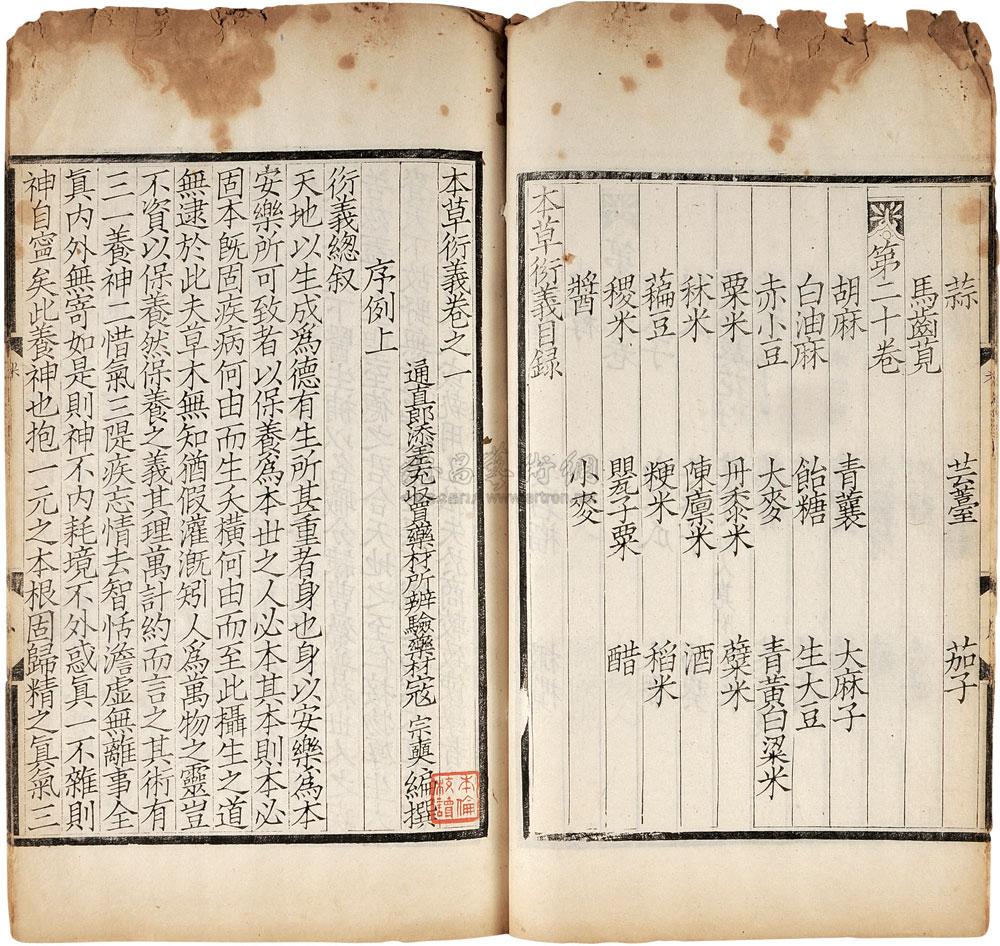 蒜 芸薹 茄子
馬齒莧
第二十卷
胡麻 青蘘 大麻子
白油麻 飴糖 生大豆
赤小豆 大麥 青黃白粱米
粟米 丹黍米 糵米
秫米 陳廩米 酒
藊豆 粳米 稻米
稷米 罌子粟 醋
醬 小麥
本草衍義目録
本草衍義卷之一
通直郎添差充收買藥材所辨驗藥材寇 宗奭 編撰
序例上
衍義總叙
天地以生成爲德有生所甚重者身也身以安樂爲本
安樂所可致者以保養爲本世之人必本其本則本必
固本旣固疾病何由而生夭橫何由而至此攝生之道
無逮於此夫草木無知猶假灌漑矧人爲萬物之靈豈
不資以保養然保養之義其理萬計約而言之其術有
三一養神二惜氣三隄疾忘情去智恬澹虛無離事全
眞内外無寄如是則神不内耗境不外惑眞一不雜則
神自寧矣此養神也抱一元之本根固歸精之眞氣三
本倫
校讀